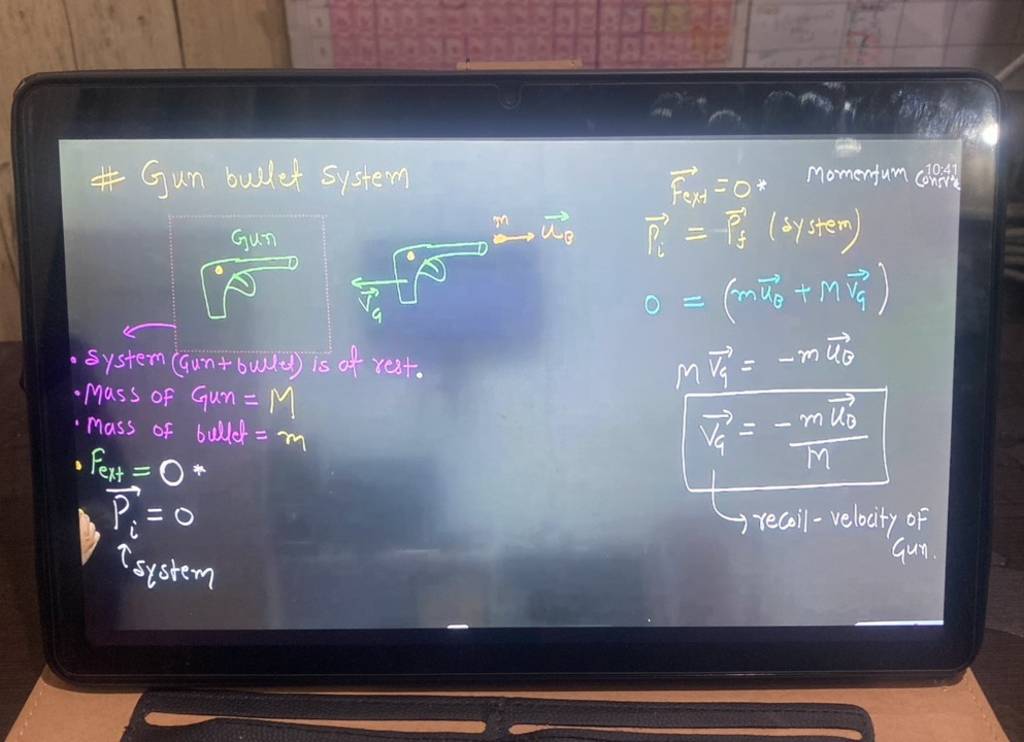 # Gun bullet system
Gun
m
u⃗_B
v⃗_G
• System (Gun + bullet) is at rest.
• Mass of Gun = M
• Mass of bullet = m
• F_ext = 0 *
P⃗_i = 0
↑ system
10:41
Momentum
F⃗_ext = 0 *
P⃗_i = P⃗_f (system)
0 = (m u⃗_B + M v⃗_G)
M v⃗_G = - m u⃗_B
v⃗_G = - m u⃗_B / M
→ recoil - velocity of
Gun.